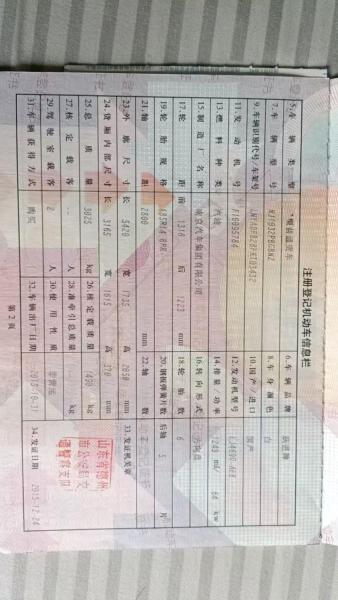 注册登记机动车信息栏
5.车辆类型 轻普通货车 6.车辆品牌 跃进牌
7.车辆型号 8.车身颜色 白
9.车辆识别代号/车架号 10.国产/进口 国产
11.发动机号 12.发动机型号
13.燃料种类 汽油 14.排量/功率 1249 ml/ 64 kw
15.制造厂名称 南京汽车集团有限公司 16.转向形式 方向盘
17.轮距 前 1310 后 1223 mm 18.轮胎数 6
19.轮胎规格 20.钢板弹簧片数 后轴 5 片
21.轴距 2800 mm 22.轴数 2
23.外廓尺寸 长 5420 宽 1735 高 2050 mm 33.发证机关章
24.货厢内部尺寸 长 3165 宽 1615 高 370 mm
25.总质量 3025 kg 26.核定载质量 1490 kg
27.核定载客 人 28.准牵引总质量 kg
29.驾驶室载客 2 人 30.使用性质 非营运
31.车辆获得方式 购买 32.车辆出厂日期 34.发证日期 2015-12-24
山东省德州
市公安局交
通警察支队
第2页